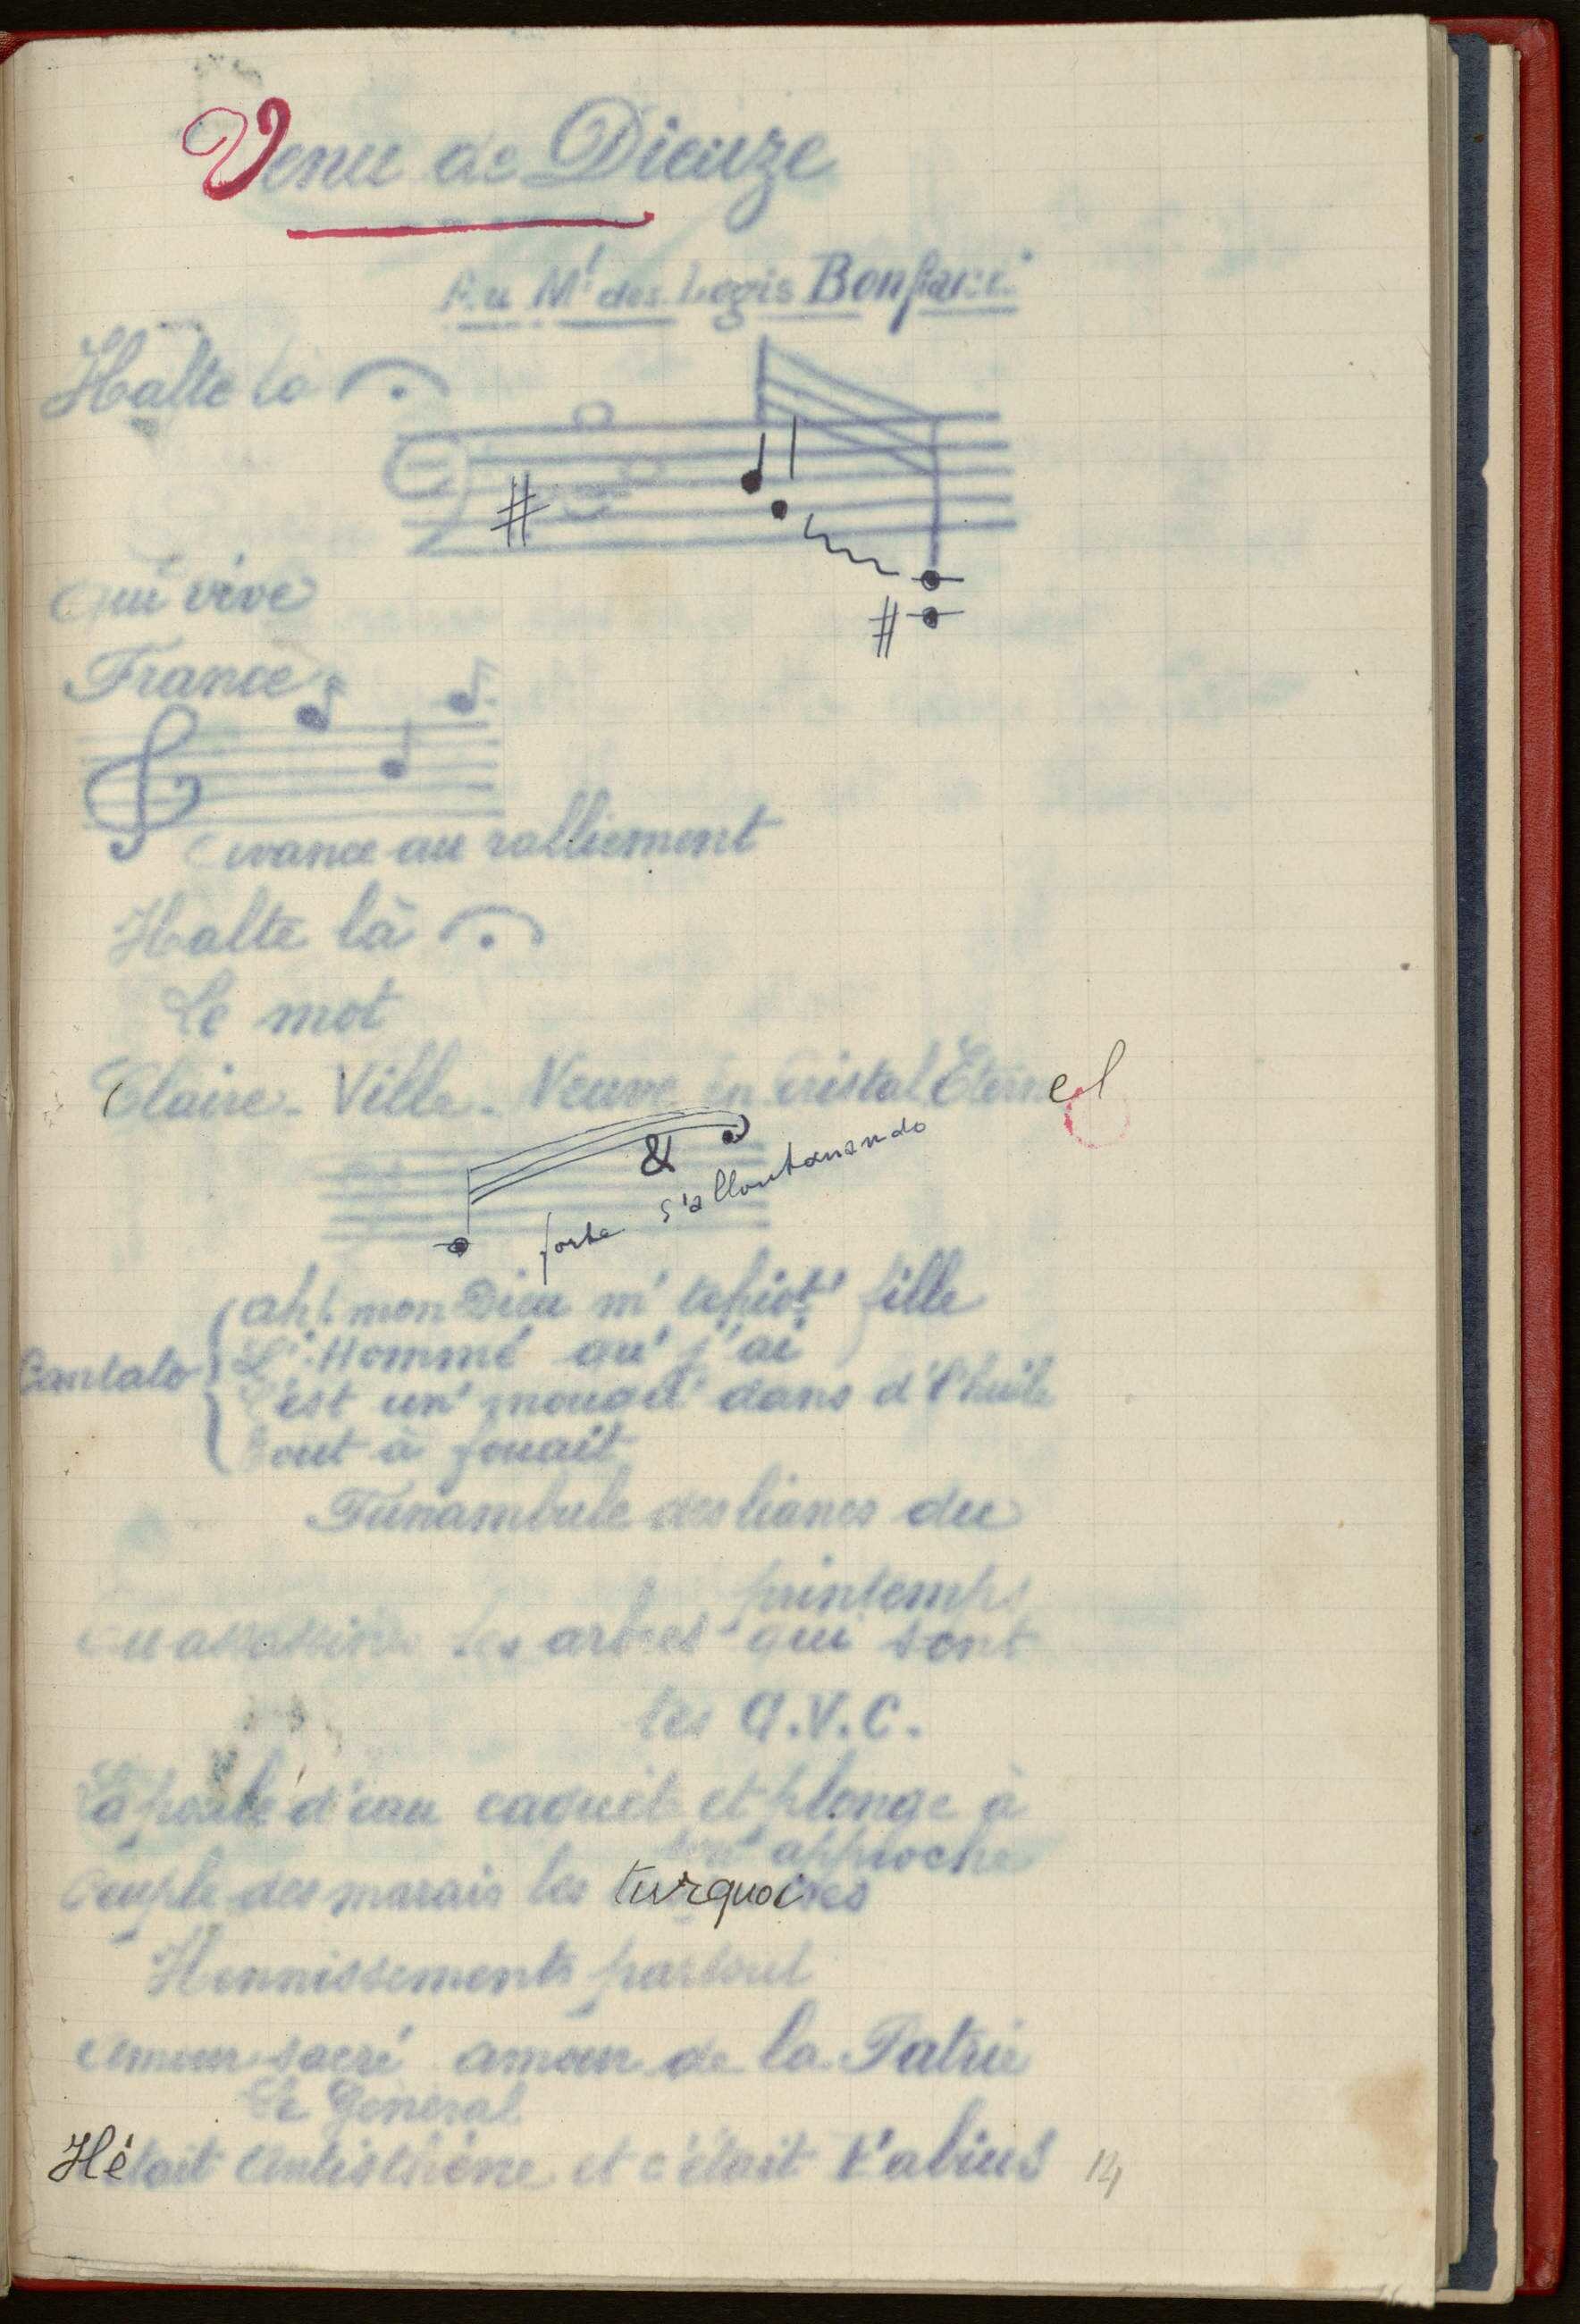 Venu de Dieuze
Au Mal des Logis Bonfanti
Halte là
Qui vive
France
Avance au ralliement
Halte là
Le mot
Claire-Ville-Neuve en Cristal Éternel
&
forte s'allontanando
Cantato
Ah! mon Dieu m' 
fille
L'Homme qu' j'ai
C'est un' dans d' l'huile
Tout à fouait
Funambule des lianes du
printemps
les arbres qui sont
les C.V.C.
La poule d'eau caquète et plonge à
ton approche
Peuple des marais les turquoises
Hennissements partout
Amour sacré amour de la Patrie
Le Général
Hétait Antisthène et c'était Fabius
14